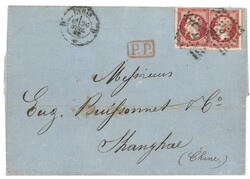 PARIS
P.P.
Messieurs
Eug. Buissonnet & Co
Shanghae
(Chine)